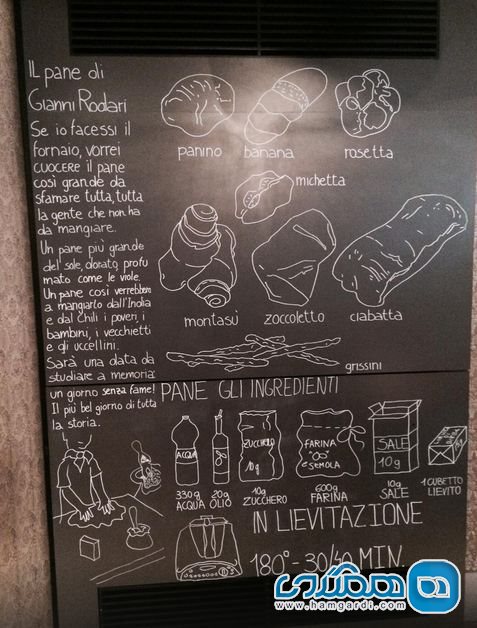 IL pane di
Gianni Rodari
Se io facessi il
fornaio, vorrei
cuocere il pane
così grande da
sfamare tutta, tutta
la gente che non ha
da mangiare.
Un pane più grande
del' sole, dorato, profu
mato come le viole.
Un pane così verrebbero
a mangiarlo dall'India
e dal Chili i poveri, i
bambini, i vecchietti
e gli uccellini.
Sarà una data da
studiare a memoria:
un giorno senza fame!
Il più bel giorno di tutta
la storia.
panino
banana
rosetta
michetta
montasù
zoccoletto
ciabatta
grissini
PANE GLI INGREDIENTI
ACQUA
ZUCCHERO
10g
FARINA
"00"
e SEMOLA
SALE
10g
330g
ACQUA
20g
OLIO
10g
ZUCCHERO
600g
FARINA
10g
SALE
1 CUBETTO
LIEVITO
IN LIEVITAZIONE
180°-30/40 MIN.
همگردی
www.hamgardi.com